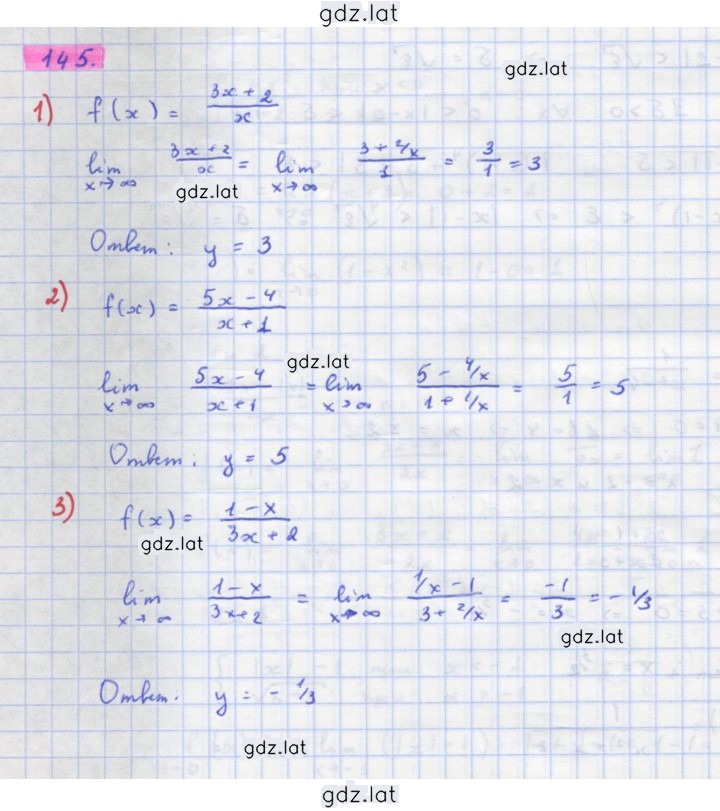 gdz.lat
145.
gdz.lat
1) f(x) = (3x + 2)/x
lim x→∞ (3x + 2)/x = lim x→∞ (3 + 2/x)/1 = 3/1 = 3
gdz.lat
Ответ: y = 3
2) f(x) = (5x - 4)/(x + 1)
gdz.lat
lim x→∞ (5x - 4)/(x + 1) = lim x→∞ (5 - 4/x)/(1 + 1/x) = 5/1 = 5
Ответ: y = 5
3) f(x) = (1 - x)/(3x + 2)
gdz.lat
lim x→∞ (1 - x)/(3x + 2) = lim x→∞ (1/x - 1)/(3 + 2/x) = -1/3 = - 1/3
gdz.lat
Ответ: y = - 1/3
gdz.lat
gdz.lat